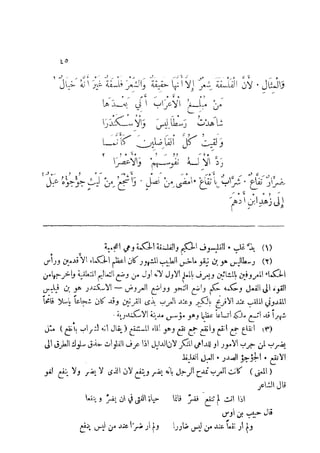 ٤٥
فالمثال ٠ لأن الفلسفة شعر إلا أنها حقيقة والشعر فلسفة غير أنه خيال ١
من مبلغ الأعراب أني بعدها
شاهدت رسطاليس والإسكندرا
ولقيت كل الفاضلين كأنما
رد الإله نفوسهم والأعصرا
٠ شراب بأنقاع ٠ أمضى من نصل ٠ وأشجع من ليث جؤجؤه عبل
إلى زهد ابن أدهم
(١) الفيلسوف الحكيم والفلسفة الحكمة وهي اعجمية
(٢) رسطاليس هو بن نيقوماخس الطبيب المشهور كان اعظم الحكماء الاقدمين ورأس
الحكماء المعروفين بالمشائين ويعرف بالمعلم الاول لانه اول من وضع التعاليم المنطقية واخرجها من
القوة الى الفعل وحكمه حكم واضع النحو وواضع العروض — الاسكندر هو بن فيلبس
المقدوني الملقب عند الافرنج بالكبير وعند العرب بذي القرنين وقد كان شجاعاً باسلاً فاتحاً
شهيراً قد اتسع ملكه اتساعاً عظيماً وهو مؤسس مدينة الاسكندرية
(٣) أنقاع جمع أنقع وأنقع جمع نقع وهو الماء المستنقع (يقال أنه لشراب بأنقع) مثل
يضرب لمن جرب الامور او للداهي المنكر لأن الدليل اذا عرف الفلوات حذق سلوك الطرق الى
الانقع ٠ الجؤجؤ الصدر ٠ العبل الغليظ
(المعنى) كانت العرب تمدح الرجل بأنه يضر وينفع لان الذي لا يضر ولا ينفع لغو
قال الشاعر
اذا انت لم تنفع فضر فانما حياة الفتى في ان يضر و ينفعا
قال حبيب بن اوس
ولم أر نفعاً عند من ليس ضاررا ولم أر ضراً عند من ليس ينفع